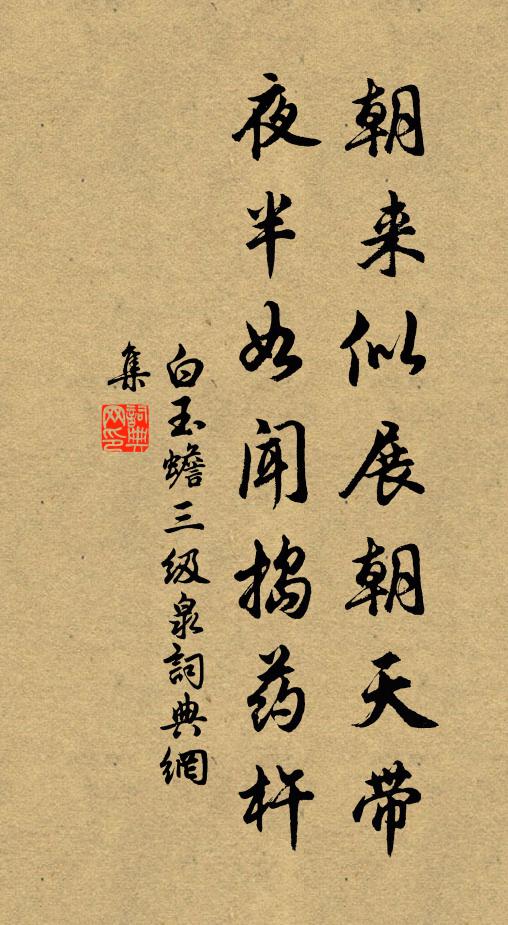 朝来似展朝天带
夜半如闻捣药杵
白玉蟾三级泉詞典網
集
詞典网印